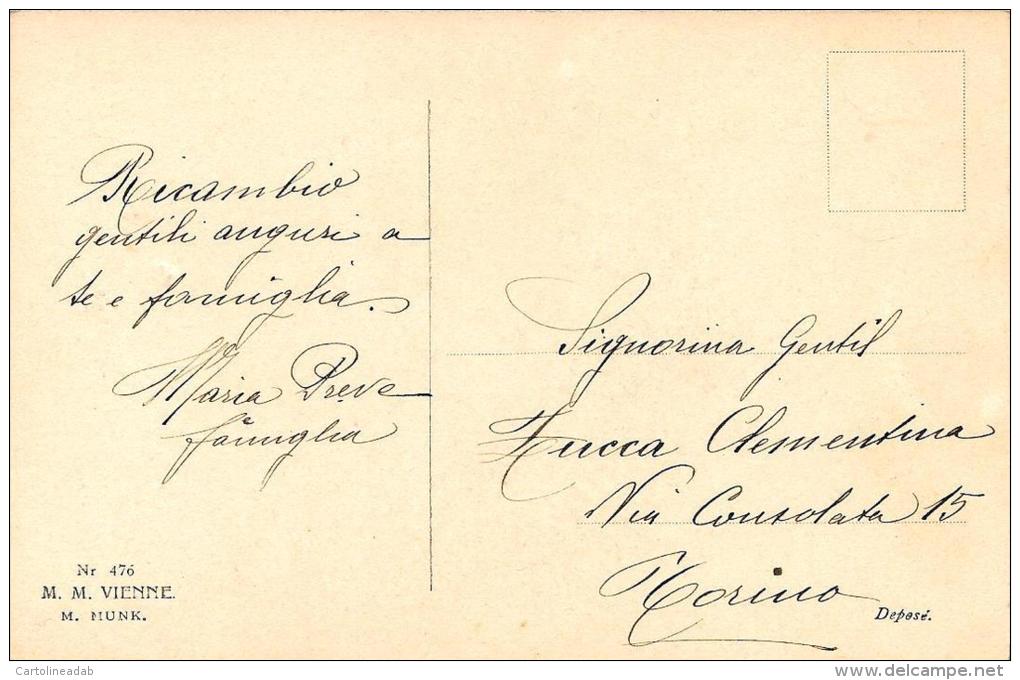 Ricambio
gentili auguri a
te e famiglia.
Maria Preve
famiglia
Nr 476
M. M. VIENNE.
M. MUNK.
Signorina Gentil
Zucca Clementina
Via Consolata 15
Torino
Deposé.
Cartolineadab
www.delcampe.net